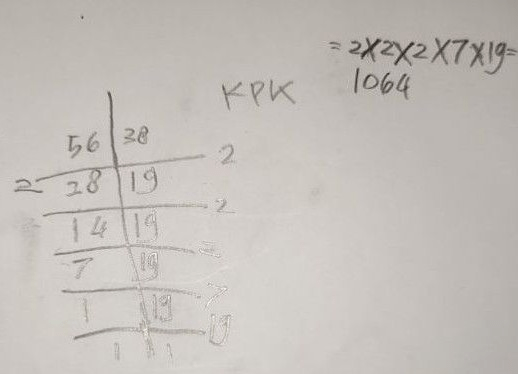 =2X2X2X7X19=
1064
KPK
56 38 2
2 28 19
2
14 19
2
7 19
7
1 19
19
1 1